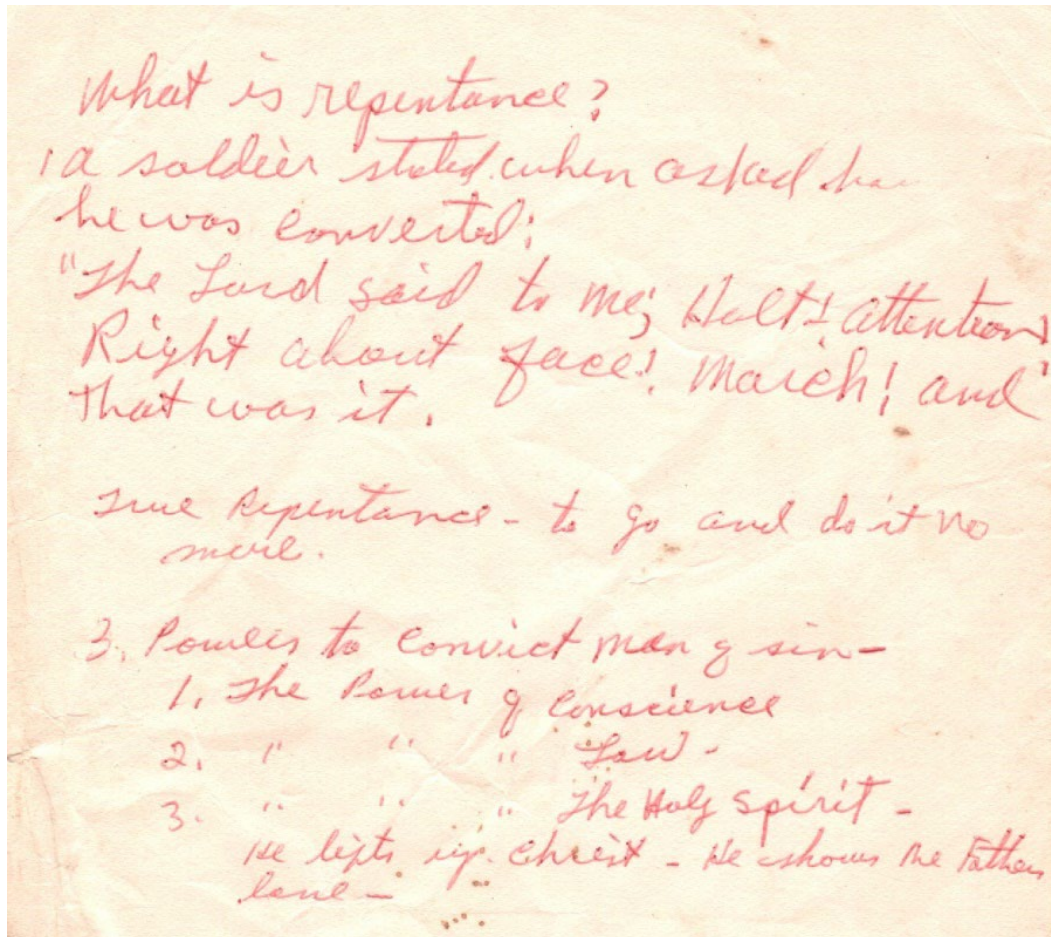 What is repentance?
1 a soldier stated when asked how
he was converted;
"The Lord said to me; Halt! attention!
Right about face! March! and
that was it.
True Repentance - to go and do it no
more.
3. Powers to convict man of sin -
1. The Power of Conscience
2. " " " Law -
3. " " " The Holy Spirit -
He lifts up Christ - He shows the Fathers
love -